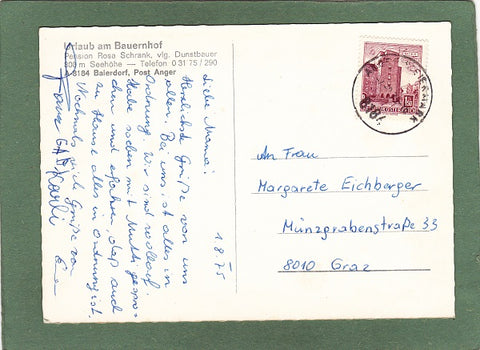 Urlaub am Bauernhof
Pension Rosa Schrank, vlg. Dunstbauer
800 m Seehöhe — Telefon 0 31 75 / 290
A-8184 Baierdorf, Post Anger
1.8.75
Liebe Mama!
Herzlichste Grüße von uns
allen. Bei uns ist alles in
Ordnung. Wir sind wohlauf.
Habe soeben mit Mutti gespro-
chen und erfahren, daß auch
zu Hause alles in Ordnung ist.
Nochmals viele Grüße von
Franz Karli
An Frau
Margarete Eichberger
Münzgrabenstraße 33
8010 Graz
8184